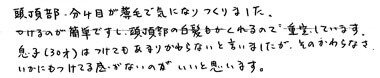 頭頂部、分け目が薄毛で気になりつくりました。
つけるのが簡単ですし、頭頂部の白髪もかくれるので重宝しています。
息子(30才)はつけてもあまりかわらないと言いましたが、そのかわらなさ、
いかにもつけてる感がないのがいいと思います。